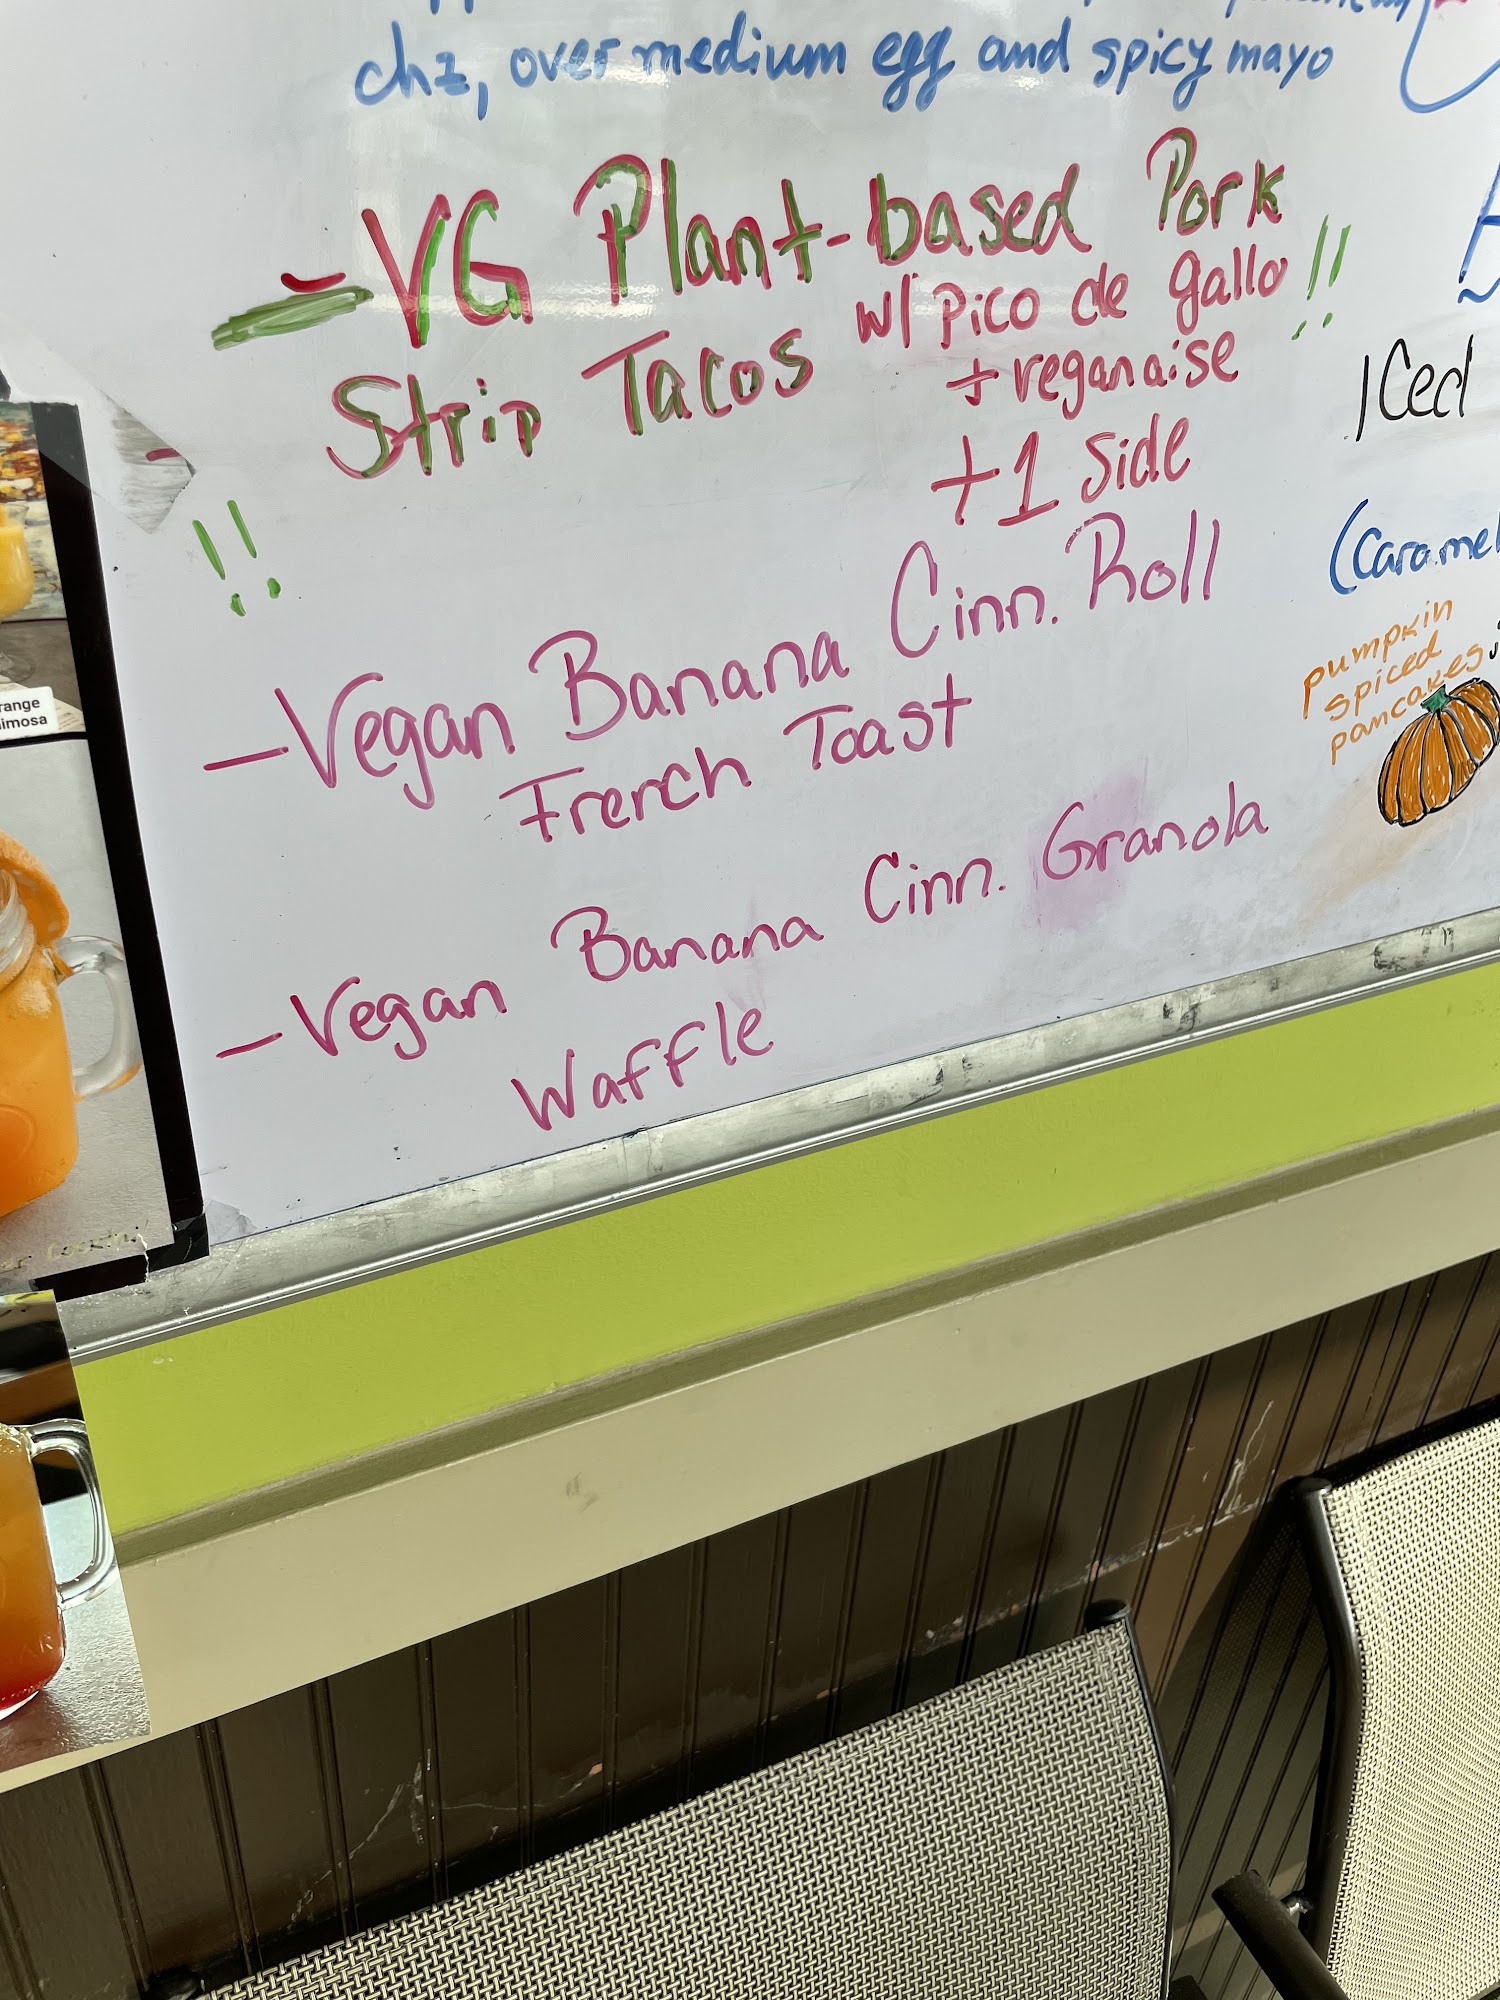 chz, over medium egg and spicy mayo
- VG Plant-based Pork
Strip Tacos w/ pico de gallo !!
+ veganaise
+ 1 side
!!
- Vegan Banana Cinn. Roll
French Toast
- Vegan Banana Cinn. Granola
Waffle
Iced
(Caramel
pumpkin
spiced
pancakes
range
imosa